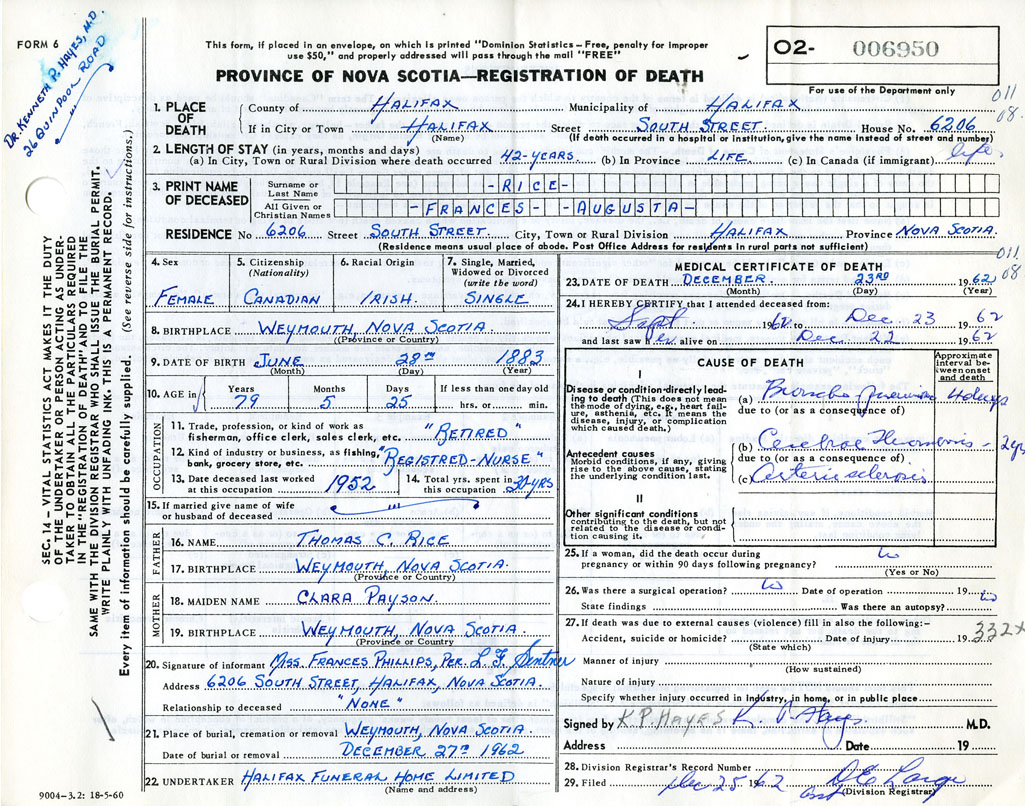 FORM 6
DR. KENNETH P. HAYES, M.D.
26 QUINPOOL ROAD
This form, if placed in an envelope, on which is printed "Dominion Statistics – Free, penalty for improper
use $50," and properly addressed will pass through the mail "FREE"
PROVINCE OF NOVA SCOTIA—REGISTRATION OF DEATH
O2- 006950
For use of the Department only
011
08.
1. PLACE OF DEATH
County of HALIFAX Municipality of HALIFAX
If in City or Town HALIFAX Street SOUTH STREET. House No. 6206
(Name) (If death occurred in a hospital or institution, give the name instead of street and number)
2. LENGTH OF STAY (in years, months and days)
(a) In City, Town or Rural Division where death occurred 42-YEARS (b) In Province LIFE. (c) In Canada (if immigrant) life.
3. PRINT NAME OF DECEASED
Surname or Last Name -RICE-
All Given or Christian Names -FRANCES- -AUGUSTA-
RESIDENCE No 6206 Street SOUTH STREET. City, Town or Rural Division HALIFAX Province NOVA SCOTIA.
(Residence means usual place of abode. Post Office Address for residents in rural parts not sufficient)
SEC. 14 – VITAL STATISTICS ACT MAKES IT THE DUTY
OF THE UNDERTAKER OR PERSON ACTING AS UNDER-
TAKER TO OBTAIN ALL THE PARTICULARS REQUIRED
IN THE "REGISTRATION OF DEATH" AND TO FILE THE
SAME WITH THE DIVISION REGISTRAR WHO SHALL ISSUE THE BURIAL PERMIT.
WRITE PLAINLY WITH UNFADING INK. THIS IS A PERMANENT RECORD.
Every item of information should be carefully supplied. (See reverse side for instructions.)
4. Sex
FEMALE
5. Citizenship
(Nationality)
CANADIAN
6. Racial Origin
IRISH.
7. Single, Married,
Widowed or Divorced
(write the word)
SINGLE
8. BIRTHPLACE WEYMOUTH, NOVA SCOTIA.
(Province or Country)
9. DATE OF BIRTH JUNE 28TH 1883
(Month) (Day) (Year)
10. AGE in
Years Months Days If less than one day old
79 5 25 hrs. or min.
OCCUPATION
11. Trade, profession, or kind of work as
fisherman, office clerk, sales clerk, etc. "RETIRED"
12. Kind of industry or business, as fishing,
bank, grocery store, etc. "REGISTRED-NURSE"
13. Date deceased last worked
at this occupation 1952
14. Total yrs. spent in
this occupation 30-YRS
15. If married give name of wife
or husband of deceased
FATHER
16. NAME THOMAS C. RICE
17. BIRTHPLACE WEYMOUTH, NOVA SCOTIA.
(Province or Country)
MOTHER
18. MAIDEN NAME CLARA PAYSON.
19. BIRTHPLACE WEYMOUTH, NOVA SCOTIA.
(Province or Country)
20. Signature of informant MISS FRANCES PHILLIPS, PER. L F. Sentner
Address 6206 SOUTH STREET, HALIFAX, NOVA SCOTIA.
Relationship to deceased "NONE"
21. Place of burial, cremation or removal WEYMOUTH, NOVA SCOTIA
Date of burial or removal DECEMBER 27TH 1962
22. UNDERTAKER HALIFAX FUNERAL HOME LIMITED
(Name and address)
9004–3.2: 18-5-60
MEDICAL CERTIFICATE OF DEATH
011
08
23. DATE OF DEATH DECEMBER. 23RD 1962
(Month) (Day) (Year)
24. I HEREBY CERTIFY that I attended deceased from:
Sept 1962 to Dec. 23 1962
and last saw her alive on Dec. 22 1962
CAUSE OF DEATH
Approximate interval between onset and death
I
Disease or condition directly lead-
ing to death (This does not mean
the mode of dying, e.g., heart fail-
ure, asthenia, etc. It means the
disease, injury, or complication
which caused death.)
(a) Broncho pneumonia 4 days
due to (or as a consequence of)
Antecedent causes
Morbid conditions, if any, giving
rise to the above cause, stating
the underlying condition last.
(b) Cerebral Thrombosis - 2 yrs
due to (or as a consequence of)
(c) Arteriosclerosis
II
Other significant conditions
contributing to the death, but not
related to the disease or condi-
tion causing it.
25. If a woman, did the death occur during
pregnancy or within 90 days following pregnancy?
(Yes or No)
26. Was there a surgical operation? Date of operation 19
State findings Was there an autopsy?
27. If death was due to external causes (violence) fill in also the following:–
Accident, suicide or homicide? Date of injury 19
(State which)
332x
Manner of injury
(How sustained)
Nature of injury
Specify whether injury occurred in Industry, in home, or in public place
Signed by K.P. HAYES K. P. Hayes M.D.
Address Date 19
28. Division Registrar's Record Number
29. Filed Dec 25 1962
(Division Registrar)